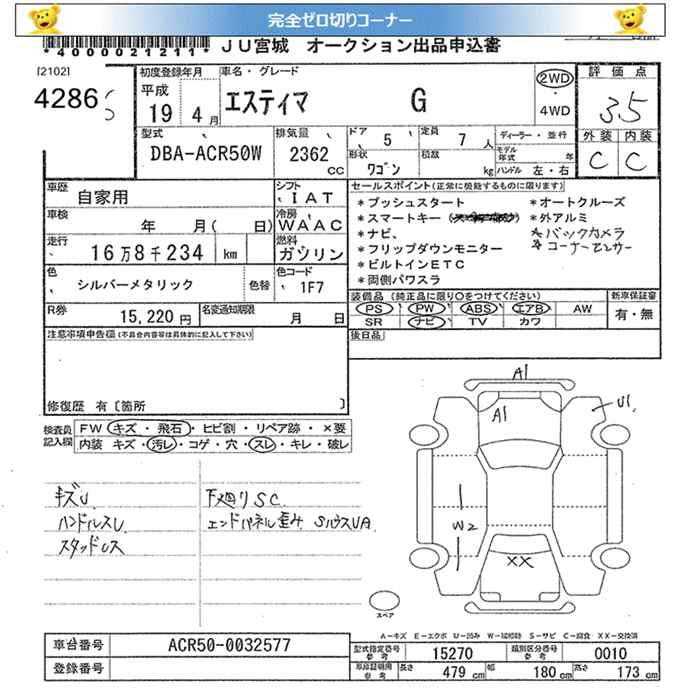 完全ゼロ切りコーナー
*4000021211* JU宮城 オークション出品申込書
[2102]
4286
初度登録年月 平成 19 4月
車名・グレード エスティマ G
2WD
・
4WD
評価点
3.5
外装 内装
C C
型式 DBA-ACR50W
排気量 2362 cc
ドア 5
形状 ワゴン
定員 7 人
積載 kg
ディーラー・並行
モデル年式 年
ハンドル 左・右
車歴 自家用
シフト IAT
車検 年 月( 日)
冷房 WAAC
走行 16万8千234 km
燃料 ガソリン
色 シルバーメタリック 色替
色コード 1F7
R券 15,220円
名変通知期限 月 日
セールスポイント(正常に機能するものに限ります)
*プッシュスタート *オートクルーズ
*スマートキー *外アルミ
*ナビ、 *バックカメラ
*フリップダウンモニター *コーナーセンサー
*ビルトインETC
*両側パワスラ
装備品(純正品に限り○をつけてください)
PS PW ABS エアB AW
SR ナビ TV カワ
新車保証書
有・無
後日品
注意事項申告欄(不具合内容は具体的に記入して下さい)
修復歴 有〔箇所 〕
検査員記入欄
FW キズ・飛石・ヒビ割・リペア跡・×要
内装 キズ・汚レ・コゲ・穴・スレ・キレ・破レ
キズU
ハンドルスレ
スタッドレス
下廻りSC
エンドパネル歪み SハウスUA
A1
A1
U1
W2
XX
スペア
A-キズ E-エクボ U-凹み W-補修跡 S-サビ C-腐食 XX-交換済
車台番号 ACR50-0032577
登録番号
型式指定番号 参考 15270
類別区分番号 参考 0010
車庫証明用 参考 長さ 479cm 幅 180cm 高さ 173cm